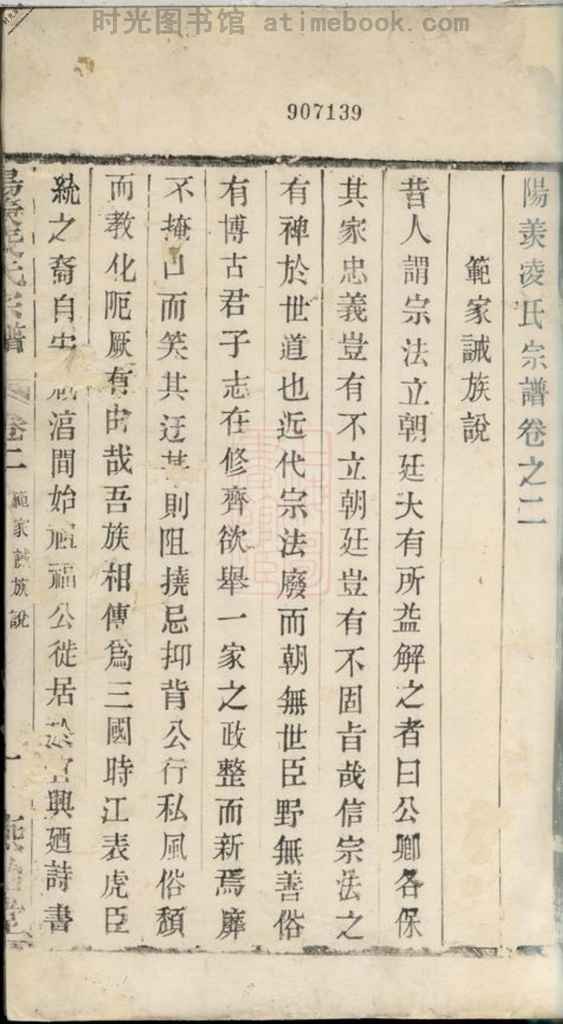 时光图书馆 atimebook.com
907139
陽羨凌氏宗譜卷之二
範家誡族說
昔人謂宗法立朝廷大有所益解之者曰公卿各保
其家忠義豈有不立朝廷豈有不固旨哉信宗法之
有裨於世道也近代宗法廢而朝無世臣野無善俗
有博古君子志在修齊欲舉一家之政整而新焉靡
不掩口而笑其迂甚則阻撓忌抑背公行私風俗頹
而教化阨厥有由哉吾族相傳爲三國時江表虎臣
統之裔自宋間始福公徙居宜興廼詩書
氏宗譜卷二 範家誡族說 一